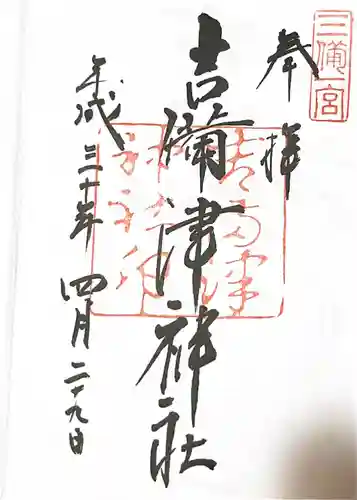 三備一宮
奉拝
吉備津神社
平成三十年四月二十九日